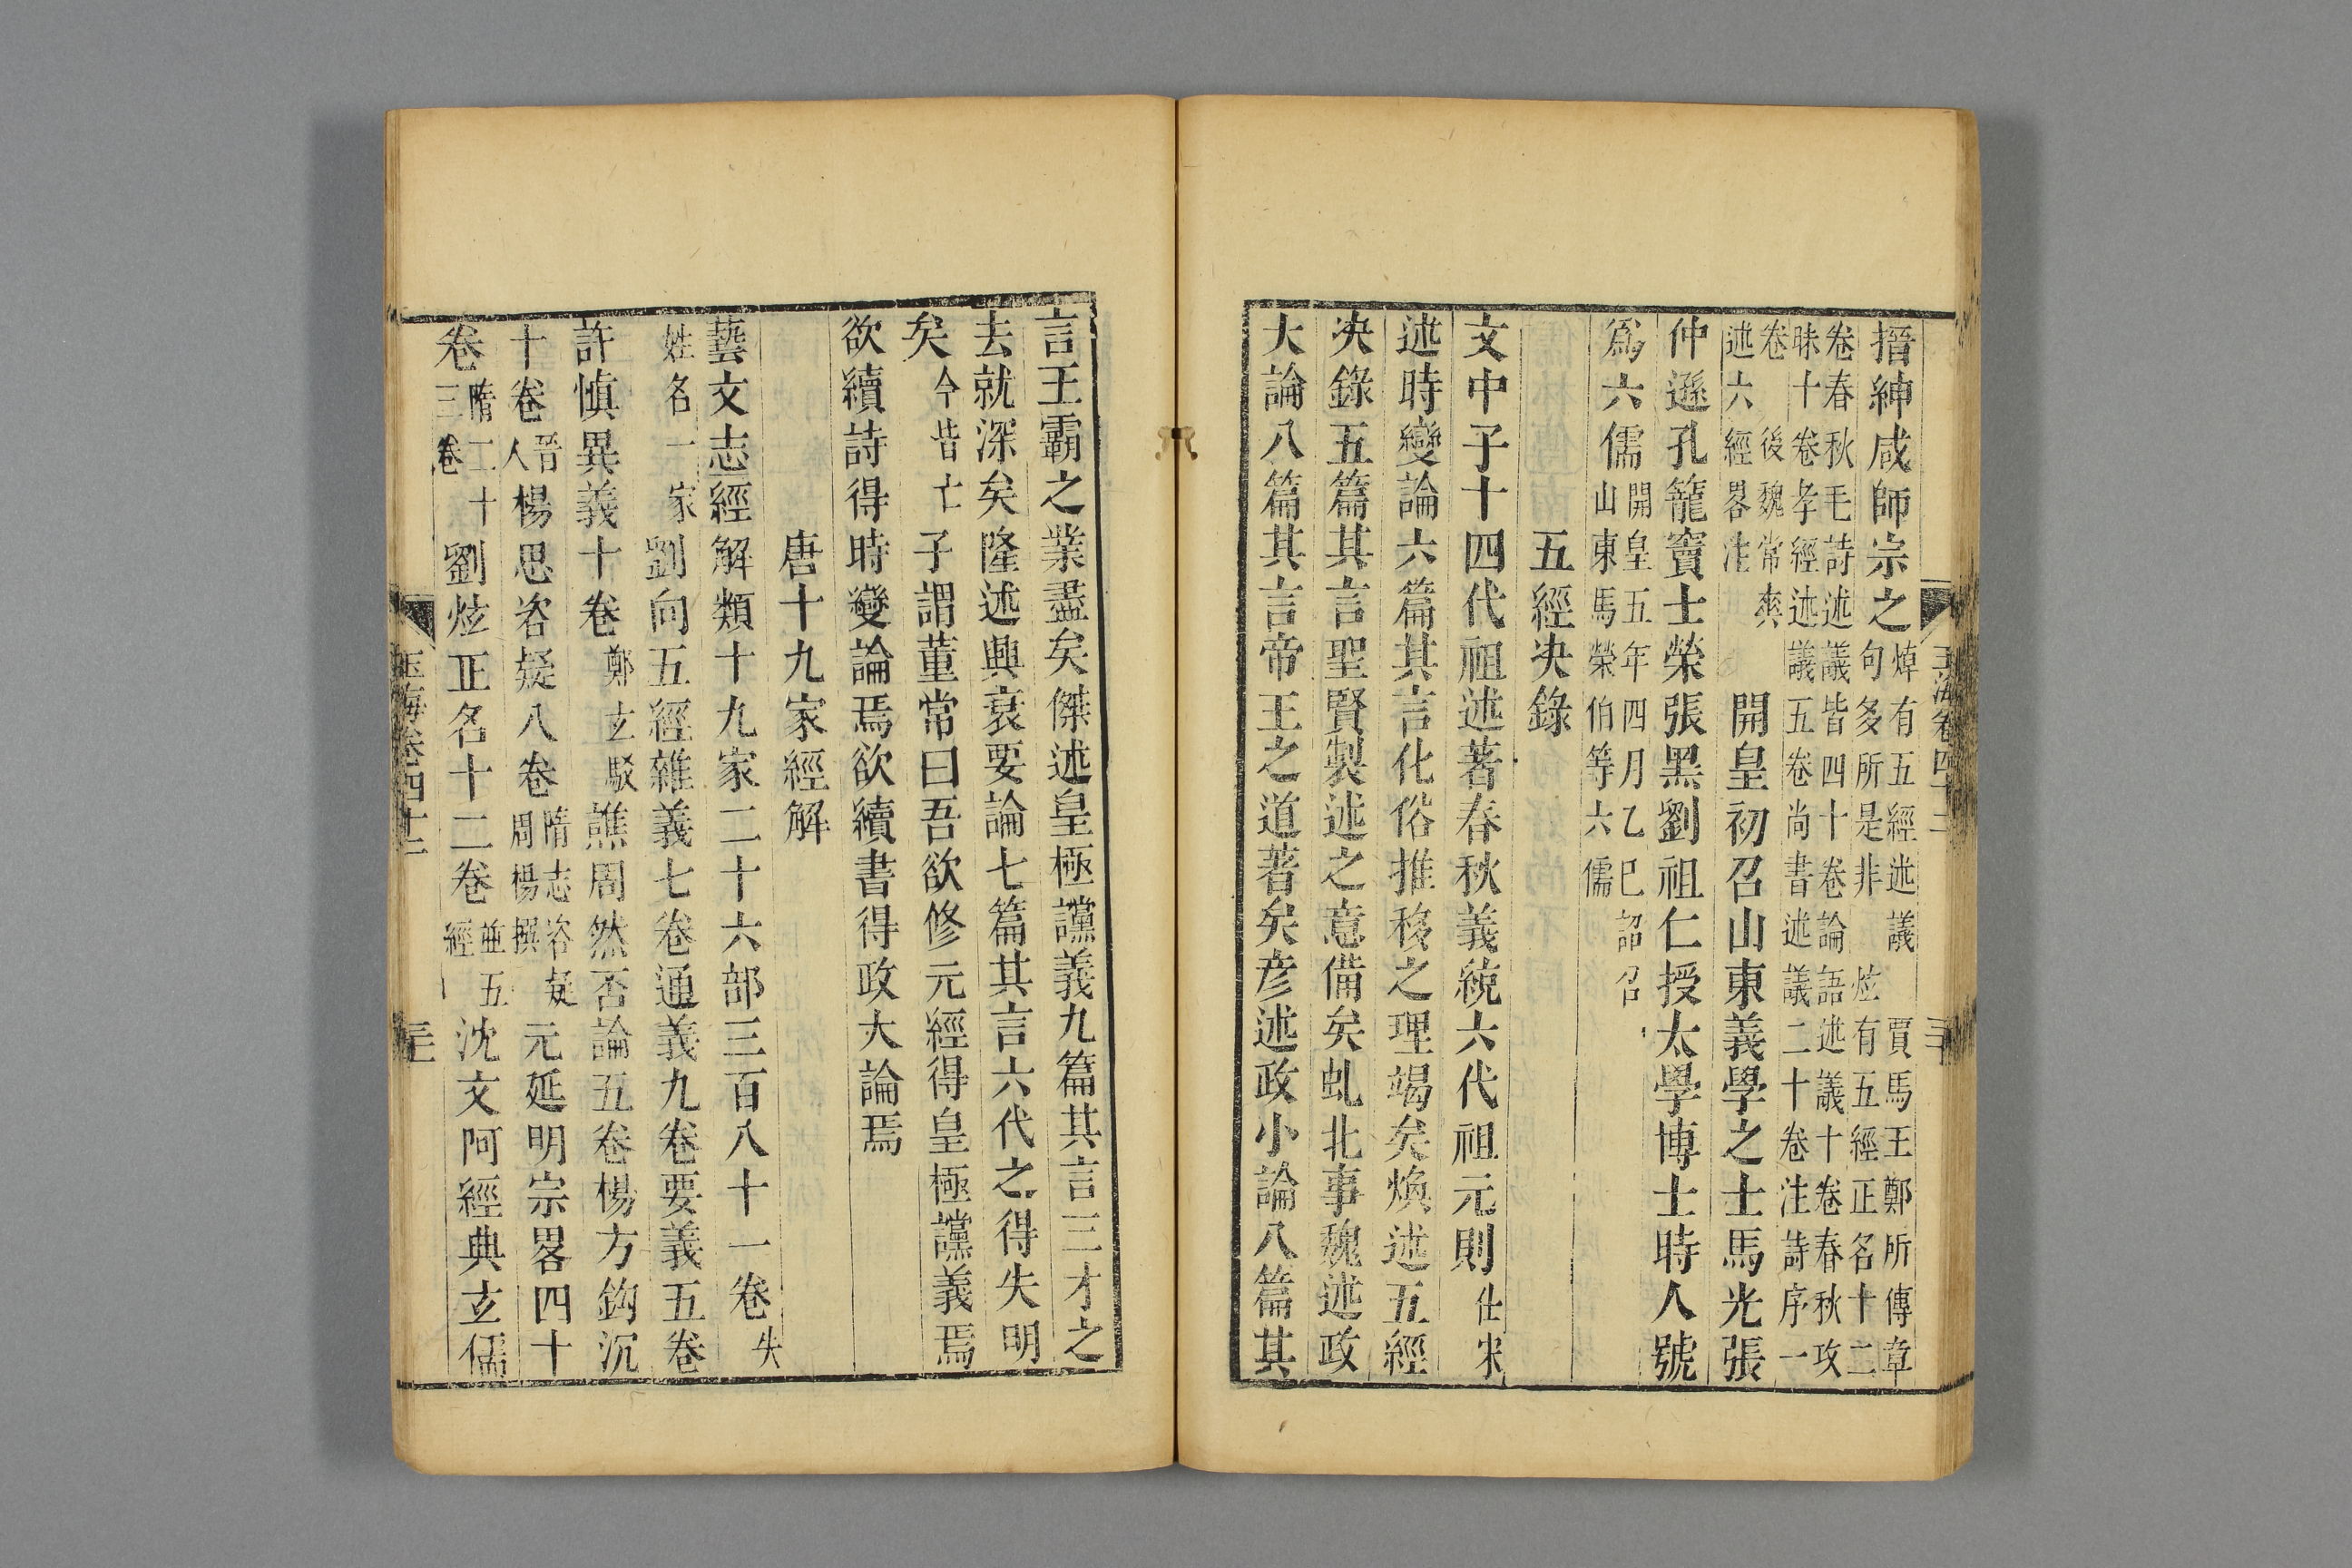 搢紳咸師宗之焯有五經述議 賈馬王鄭所傳章
句多所是非 炫有五經正名十二
卷春秋毛詩述議皆四十卷論語述議十卷春秋攻
昧十卷孝經述議五卷尚書述議二十卷注詩序一
卷 後魏常爽
述六經畧注 開皇初召山東義學之士馬光張
仲遜孔籠竇士榮張黑劉祖仁授太學博士時人號
爲六儒開皇五年四月乙巳詔召
山東馬榮伯等六儒
五經決錄
文中子十四代祖述著春秋義統六代祖元則仕宋
述時變論六篇其言化俗推移之理竭矣煥述五經
決錄五篇其言聖賢製述之意備矣虬北事魏述政
大論八篇其言帝王之道著矣彥述政小論八篇其
言王霸之業盡矣傑述皇極讜義九篇其言三才之
去就深矣隆述興衰要論七篇其言六代之得失明
矣今皆亡子謂董常曰吾欲修元經得皇極讜義焉
欲續詩得時變論焉欲續書得政大論焉
唐十九家經解
藝文志經解類十九家二十六部三百八十一卷失
姓名一家劉向五經雜義七卷通義九卷要義五卷
許慎異義十卷鄭玄駁譙周然否論五卷楊方鈎沉
十卷晉人楊思咨疑八卷隋志咨疑
周楊撰元延明宗畧四十
卷隋二十
三卷劉炫正名十二卷並五
經沈文阿經典玄儒
玉海卷四十二